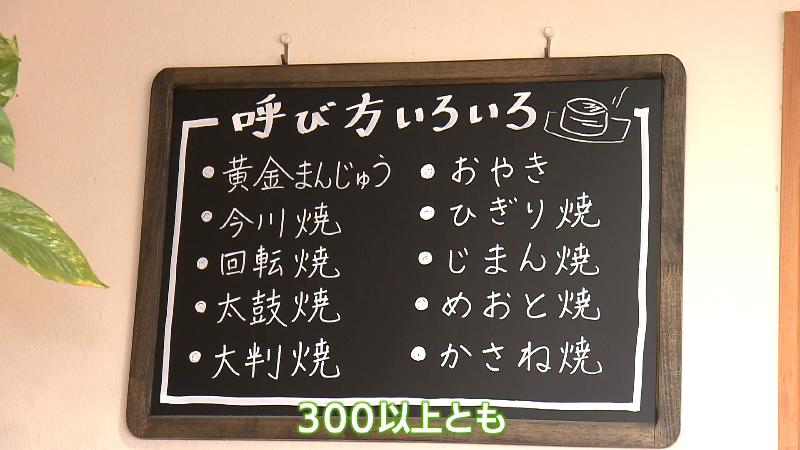 呼び方いろいろ
・黄金まんじゅう
・今川焼
・回転焼
・太鼓焼
・大判焼
・おやき
・ひぎり焼
・じまん焼
・めおと焼
・かさね焼
300以上とも